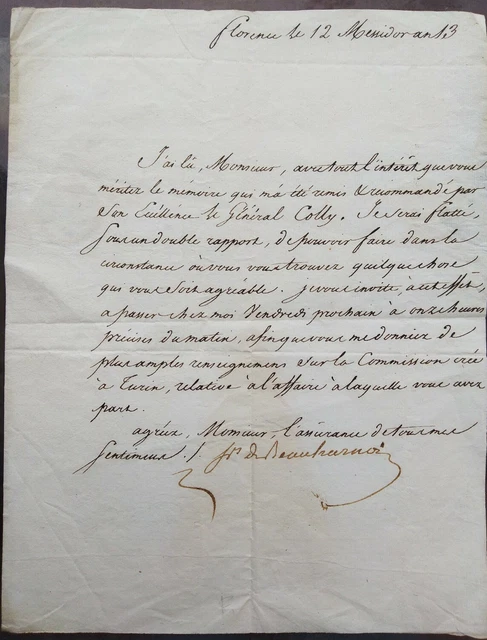 florence le 12 Messidor an 13
J'ai lû, Monsieur, avec tout l'intérêt que vous
méritez le mémoire qui m'a été remis & recommandé par
Son Excellence le Général Colly. Je serai flatté,
sous un double rapport, de pouvoir faire dans la
circonstance où vous vous trouvez quelque chose
qui vous soit agréable. je vous invite, a cet effèt,
a passer chez moi Vendredi prochain à onze heures
précises du matin, afin que vous me donniez de
plus amples renseignemens sur la Commission créé
à Turin, relative à l'affaire à laquelle vous avez
part.
agréez, Monsieur, l'assurance de tous mes
Sentimens. /. fr. de Beauharnois